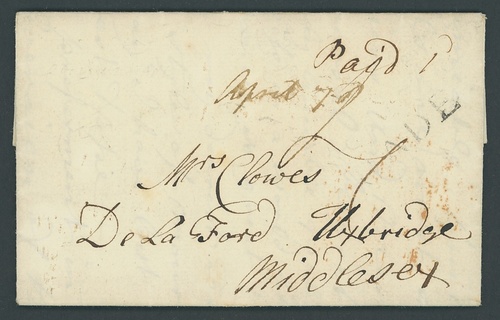 Pay'd 1
April 7
Mrs Clowes
De La Ford Uxbridge
Middlesex